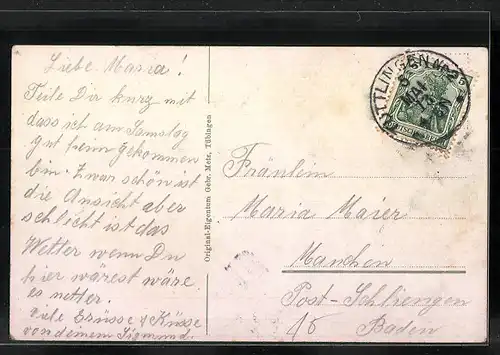 Liebe Maria!
Teile Dir kurz mit
dass ich am Samstag
gut heim gekommen
bin. Zwar schön ist
die Ansicht aber
schlecht ist das
Wetter wenn Du
hier wärest wäre
es netter.
viele Grüsse & Küsse
von deinem Sigmund.
Original-Eigentum Gebr. Metz, Tübingen
TUTTLINGEN No 2
MAI
13
Fräulein
Maria Maier
Mauchen
Post-Schliengen
Baden